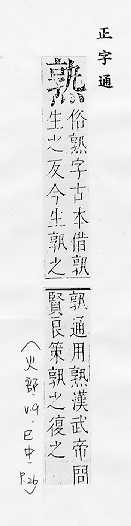 正字通
俗熟字古本借孰
生之反今生孰之
孰通用熟漢武帝問
賢良策孰之復之
(火部. v.9. 巳中. p.26)